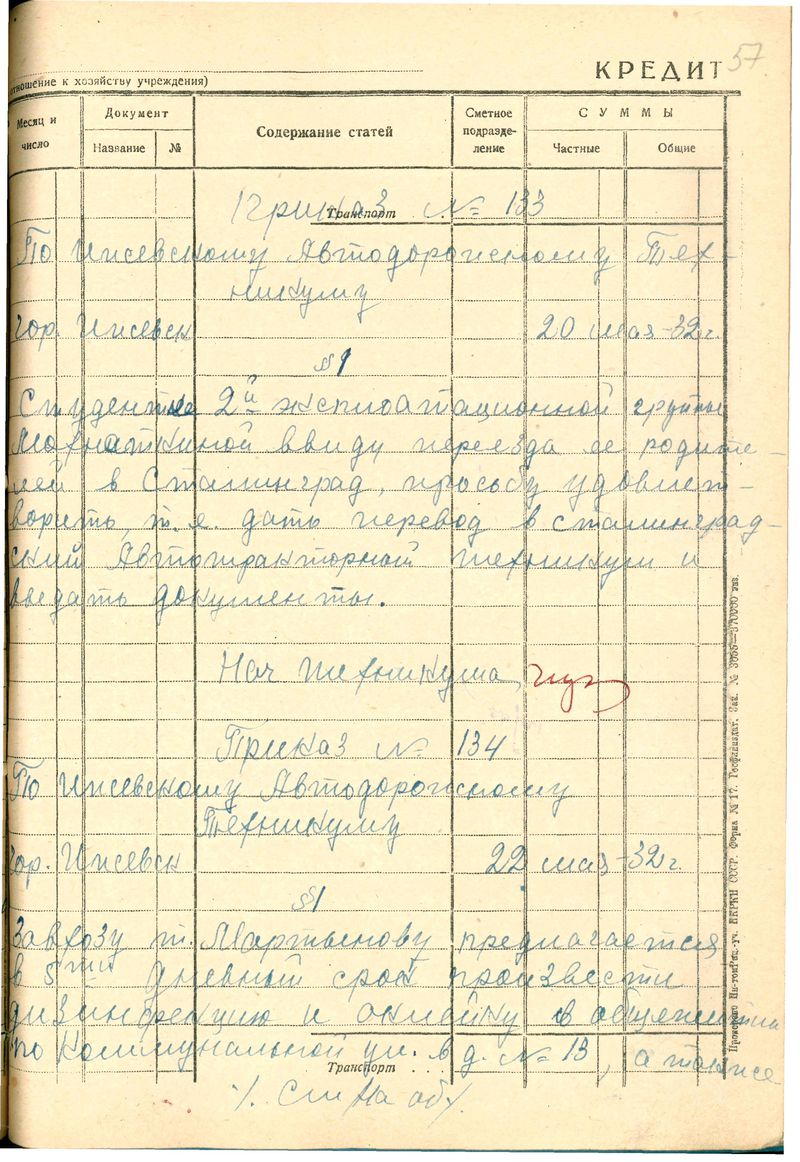 57
КРЕДИТ
отношение к хозяйству учреждения)
Месяц и число
Документ
Название
№
Содержание статей
Сметное подразде-ление
СУММЫ
Частные
Общие
Транспорт
Приказ № 133
По Ижевскому Автодорожному Тех-
никуму
гор. Ижевск 20 мая-32г.
§1
Студентке 2й эксплоатационной группы
Мохнаткиной ввиду переезда ее родите-
лей в Сталинград, просьбу удовлет-
ворить, т.е. дать перевод в сталинград-
ский Автотракторный техникум и
выдать документы.
Нач техникума
Приказ № 134
По Ижевскому Автодорожному
Техникуму
гор. Ижевск 22 мая-32г.
§1
Завхозу т. Мартьянову предлагается
в 5ти дневный срок произвести
дизинфекцию и оклейку в общежитии
по Коммунальной ул. в д. № 13, а также
Транспорт . . .
%. См на об%.
Форма № 17. Госфиниздат. Зак. №